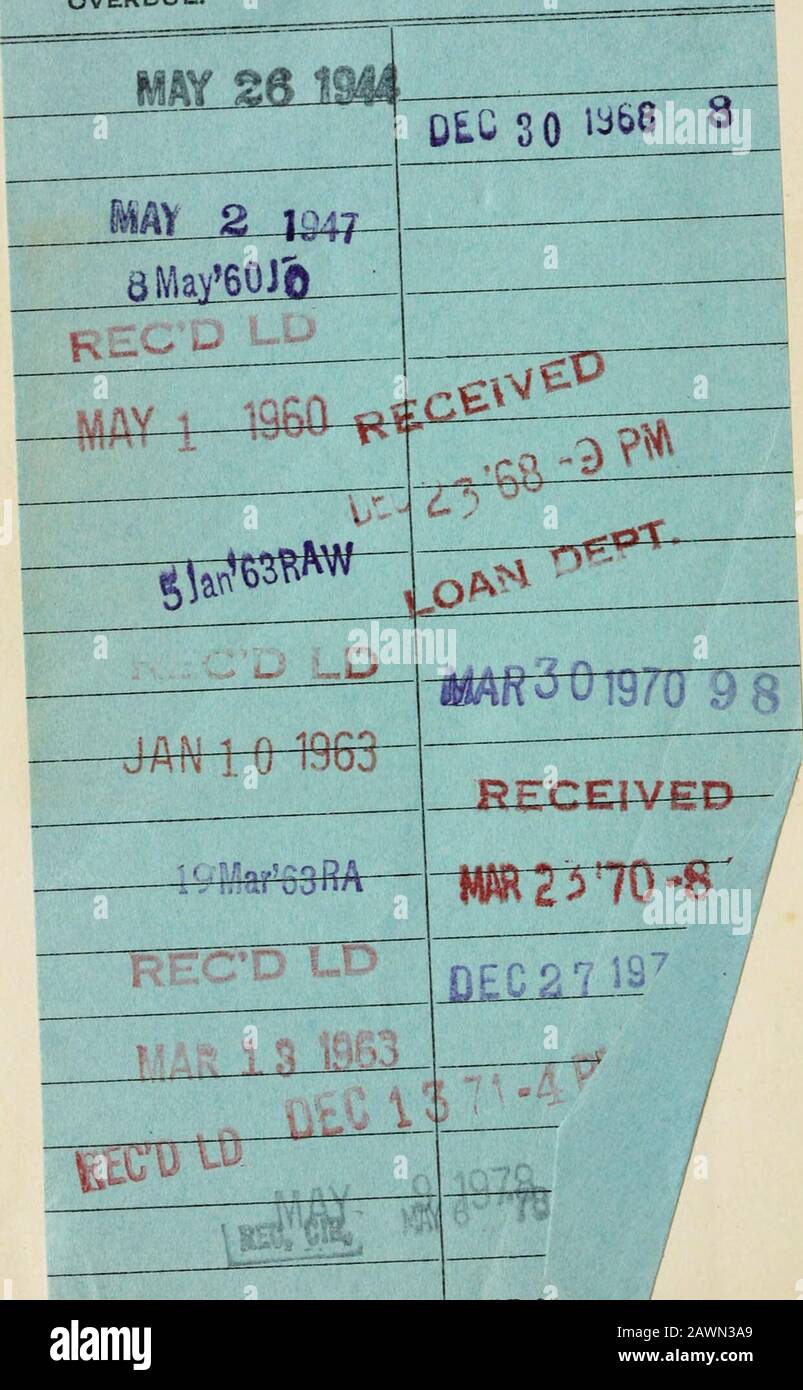 OVERDUE.
MAY 26 1944
MAY 2 1947
8 May'60JO
REC'D LD
MAY 1 1960
5Jan'63RAW
REC'D LD
JAN 10 1963
19Mar'63RA
REC'D LD
MAR 13 1963
REC'D LD DEC 13 71 -4 P
MAY 9 1978
REC. CIR. MAY 6 78
DEC 30 1968 8
RECEIVED
DEC 23 '68 -9 PM
LOAN DEPT.
MAR 30 1970 98
RECEIVED
MAR 25 '70 -8
DEC 27 197
alamy
Image ID: 2AWN3A9
www.alamy.com